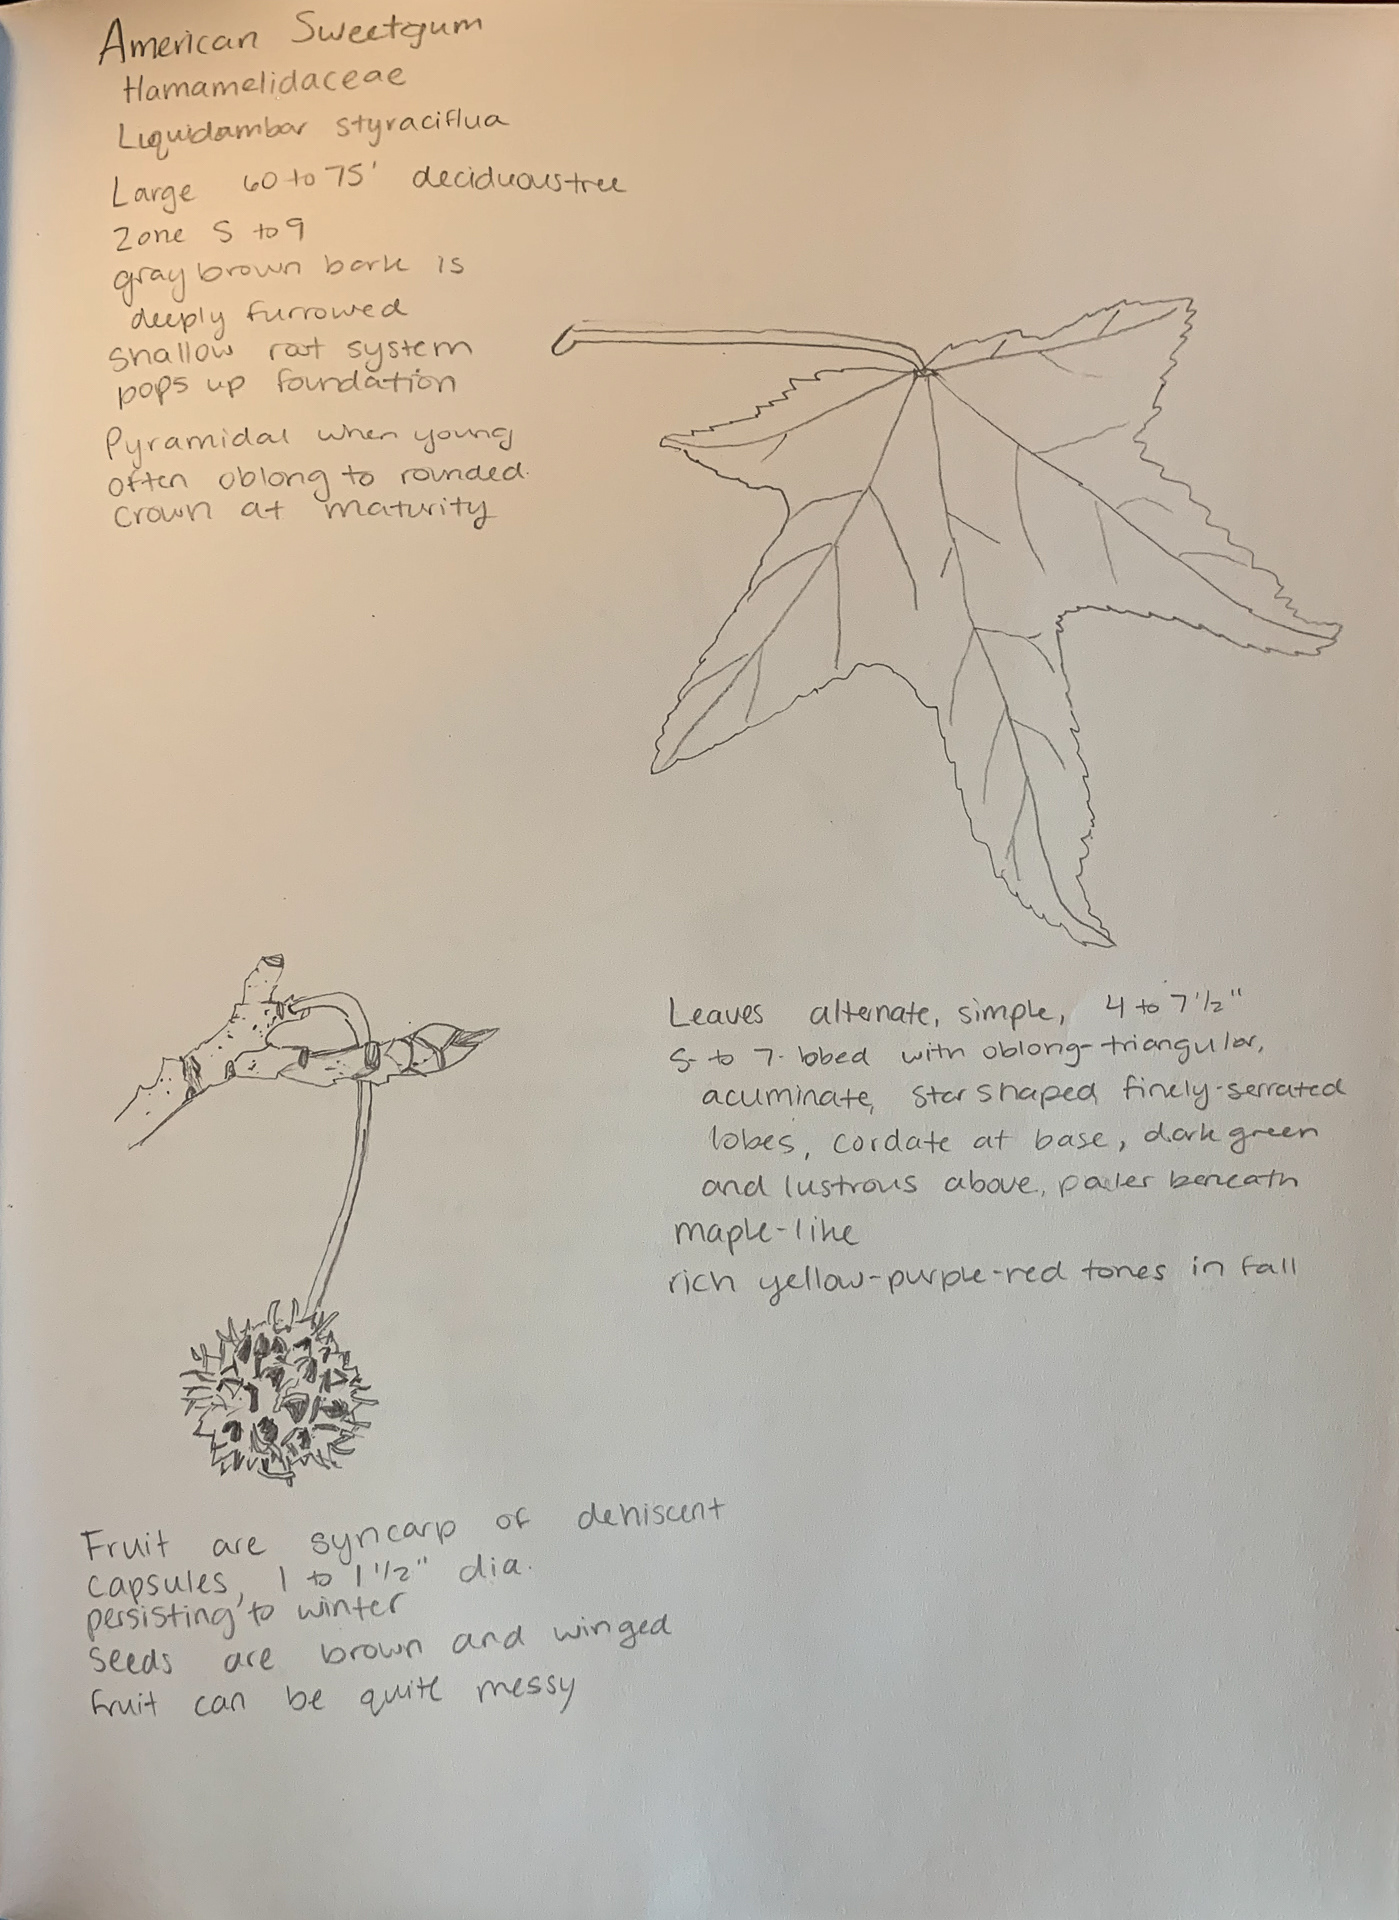 American Sweetgum
Hamamelidaceae
Liquidambar styraciflua
Large 60 to 75' deciduous tree
Zone 5 to 9
gray brown bark is
deeply furrowed
Shallow root system
pops up foundation
Pyramidal when young
often oblong to rounded
crown at maturity
Leaves alternate, simple, 4 to 7 1/2"
5- to 7-lobed with oblong-triangular,
acuminate, star shaped finely-serrated
lobes, cordate at base, dark green
and lustrous above, paler beneath
maple-like
rich yellow-purple-red tones in fall
Fruit are syncarp of dehiscent
capsules, 1 to 1 1/2" dia.
persisting to winter
Seeds are brown and winged
fruit can be quite messy